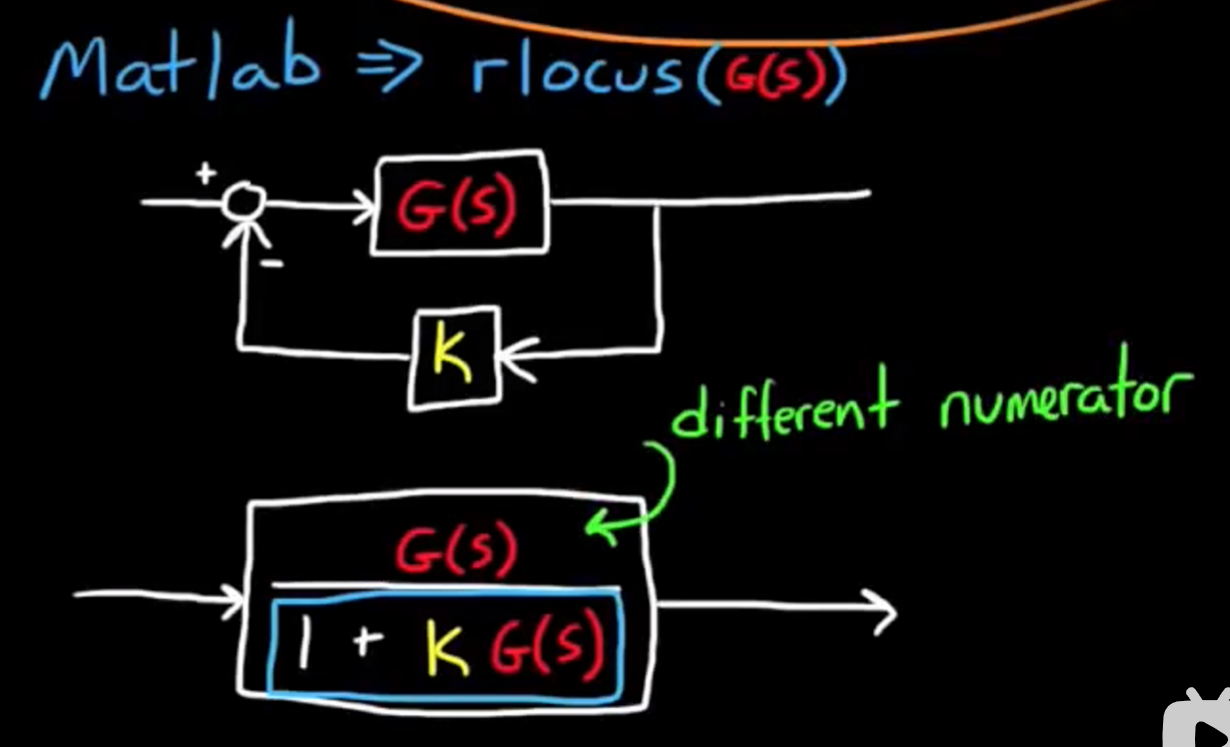 Matlab ⇒ rlocus(G(s))
+
G(s)
-
K
different numerator
G(s)
1 + K G(s)